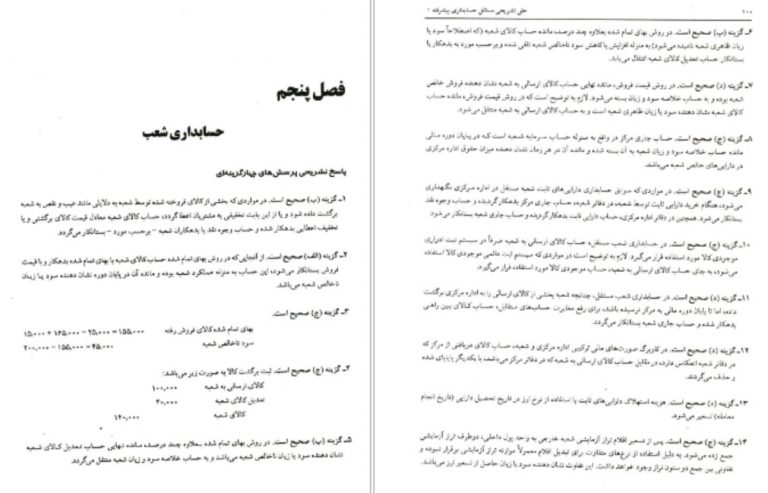 فصل پنجم
حسابداری شعب
پاسخ تشریحی پرسش‌های چهارگزینه‌ای
۱ـ گزینه (ب) صحیح است. در مواردی که بخشی از کالای فروخته شده توسط شعبه به دلایلی مانند عیب و نقص به شعبه
برگشت داده شود و یا از این بابت تخفیفی به مشتریان اعطا گردد، حساب کالای شعبه معادل قیمت کالای برگشتی و یا
تخفیف اعطایی بدهکار شده و حساب وجوه نقد یا بدهکاران شعبه – برحسب مورد – بستانکار می‌گردد.
۲ـ گزینه (الف) صحیح است. از آنجایی که در روش بهای تمام شده حساب کالای شعبه با بهای تمام شده بدهکار و با قیمت
فروش بستانکار می‌شود، این حساب به منزله عملکرد شعبه بوده و مانده آن در پایان دوره نشان دهنده سود یا زیان
ناخالص شعبه می‌باشد.
۳ـ گزینه (ج) صحیح است.
بهای تمام شده کالای فروش رفته ۱۵,۰۰۰ + ۱۶۵,۰۰۰ – ۲۵,۰۰۰ = ۱۵۵,۰۰۰
سود ناخالص شعبه ۲۰۰,۰۰۰ – ۱۵۵,۰۰۰ = ۴۵,۰۰۰
۴ـ گزینه (ج) صحیح است. ثبت برگشت کالا به صورت زیر می‌باشد:
کالای ارسالی به شعبه ۱۰۰,۰۰۰
تعدیل کالای شعبه ۴۰,۰۰۰
کالای شعبه ۱۴۰,۰۰۰
۵ـ گزینه (ب) صحیح است. در روش بهای تمام شده بعلاوه چند درصد، مانده نهایی حساب تعدیل کالای شعبه
نشان دهنده سود یا زیان ناخالص شعبه می‌باشد و به حساب خلاصه سود و زیان شعبه منتقل می‌گردد.
۲۰۰ حل تشریحی مسائل حسابداری پیشرفته ۱
۶ـ گزینه (ب) صحیح است. در روش بهای تمام شده بعلاوه چند درصد، مانده حساب کالای شعبه (که اصطلاحاً سود یا
زیان ظاهری شعبه نامیده می‌شود) به منزله افزایش یا کاهش سود ناخالص شعبه تلقی شده و برحسب مورد به بدهکار یا
بستانکار حساب تعدیل کالای شعبه انتقال می‌یابد.
۷ـ گزینه (د) صحیح است. در روش قیمت فروش، مانده نهایی حساب کالای ارسالی به شعبه نشان دهنده فروش خالص
شعبه بوده و به حساب خلاصه سود و زیان بسته می‌شود. لازم به توضیح است که در روش قیمت فروش، مانده حساب
کالای شعبه نشان دهنده سود یا زیان ظاهری شعبه است و به حساب کالای ارسالی به شعبه منتقل می‌شود.
۸ـ گزینه (ج) صحیح است. حساب جاری مرکز در واقع به منزله حساب سرمایه شعبه است که در پایان دوره مالی
مانده حساب خلاصه سود و زیان شعبه به آن بسته شده و مانده آن در هر زمان نشان دهنده میزان حقوق اداره مرکزی
در دارایی‌های خالص شعبه می‌باشد.
۹ـ گزینه (ج) صحیح است. در مواردی که سوابق حسابداری دارایی‌های ثابت شعبه مستقل در اداره مرکزی نگهداری
می‌شود، هنگام خرید دارایی ثابت توسط شعبه، در دفاتر شعبه، حساب جاری مرکز بدهکار گردیده و حساب وجوه نقد
بستانکار می‌شود. همچنین در دفاتر اداره مرکزی، حساب دارایی ثابت بدهکار گردیده و حساب جاری شعبه بستانکار می‌شود.
۱۰ـ گزینه (ج) صحیح است. در حسابداری شعب مستقل، حساب کالای ارسالی به شعبه صرفاً در سیستم ثبت ادواری
موجودی کالا مورد استفاده قرار می‌گیرد. لازم به توضیح است در مواردی که سیستم ثبت دائمی موجودی کالا استفاده
می‌شود، به جای حساب کالای ارسالی به شعبه، حساب موجودی کالا مورد استفاده قرار می‌گیرد.
۱۱ـ گزینه (د) صحیح است. در حسابداری شعب مستقل، چنانچه شعبه بخشی از کالای ارسالی را به اداره مرکزی برگشت
داده، اما تا پایان دوره مالی به مرکز نرسیده باشد، برای رفع مغایرت حساب‌های متقابل، حساب کالای بین راهی
بدهکار شده و حساب جاری شعبه بستانکار می‌گردد.
۱۲ـ گزینه (د) صحیح است. در کاربرگ صورت‌های مالی ترکیبی اداره مرکزی و شعبه، حساب کالای دریافتی از مرکز که
در دفاتر شعبه انعکاس دارد، در مقابل حساب کالای ارسالی به شعبه که در دفاتر مرکز می‌باشد، با یکدیگر پایاپای شده
و حذف می‌گردند.
۱۳ـ گزینه (د) صحیح است. هزینه استهلاک دارایی‌های ثابت با استفاده از نرخ ارز در تاریخ تحصیل دارایی (تاریخ انجام
معامله) تسعیر می‌شود.
۱۴ـ گزینه (ج) صحیح است. پس از تسعیر اقلام تراز آزمایشی شعبه خارجی به واحد پول داخلی، دو طرف تراز آزمایشی
جمع زده می‌شود. به دلیل استفاده از نرخ‌های متفاوت برای تبدیل اقلام معمولاً موازنه تراز آزمایشی برقرار نبوده و
تفاوتی بین جمع دو ستون تراز وجود خواهد داشت. این تفاوت نشان دهنده سود یا زیان حاصل از تسعیر ارز می‌باشد.